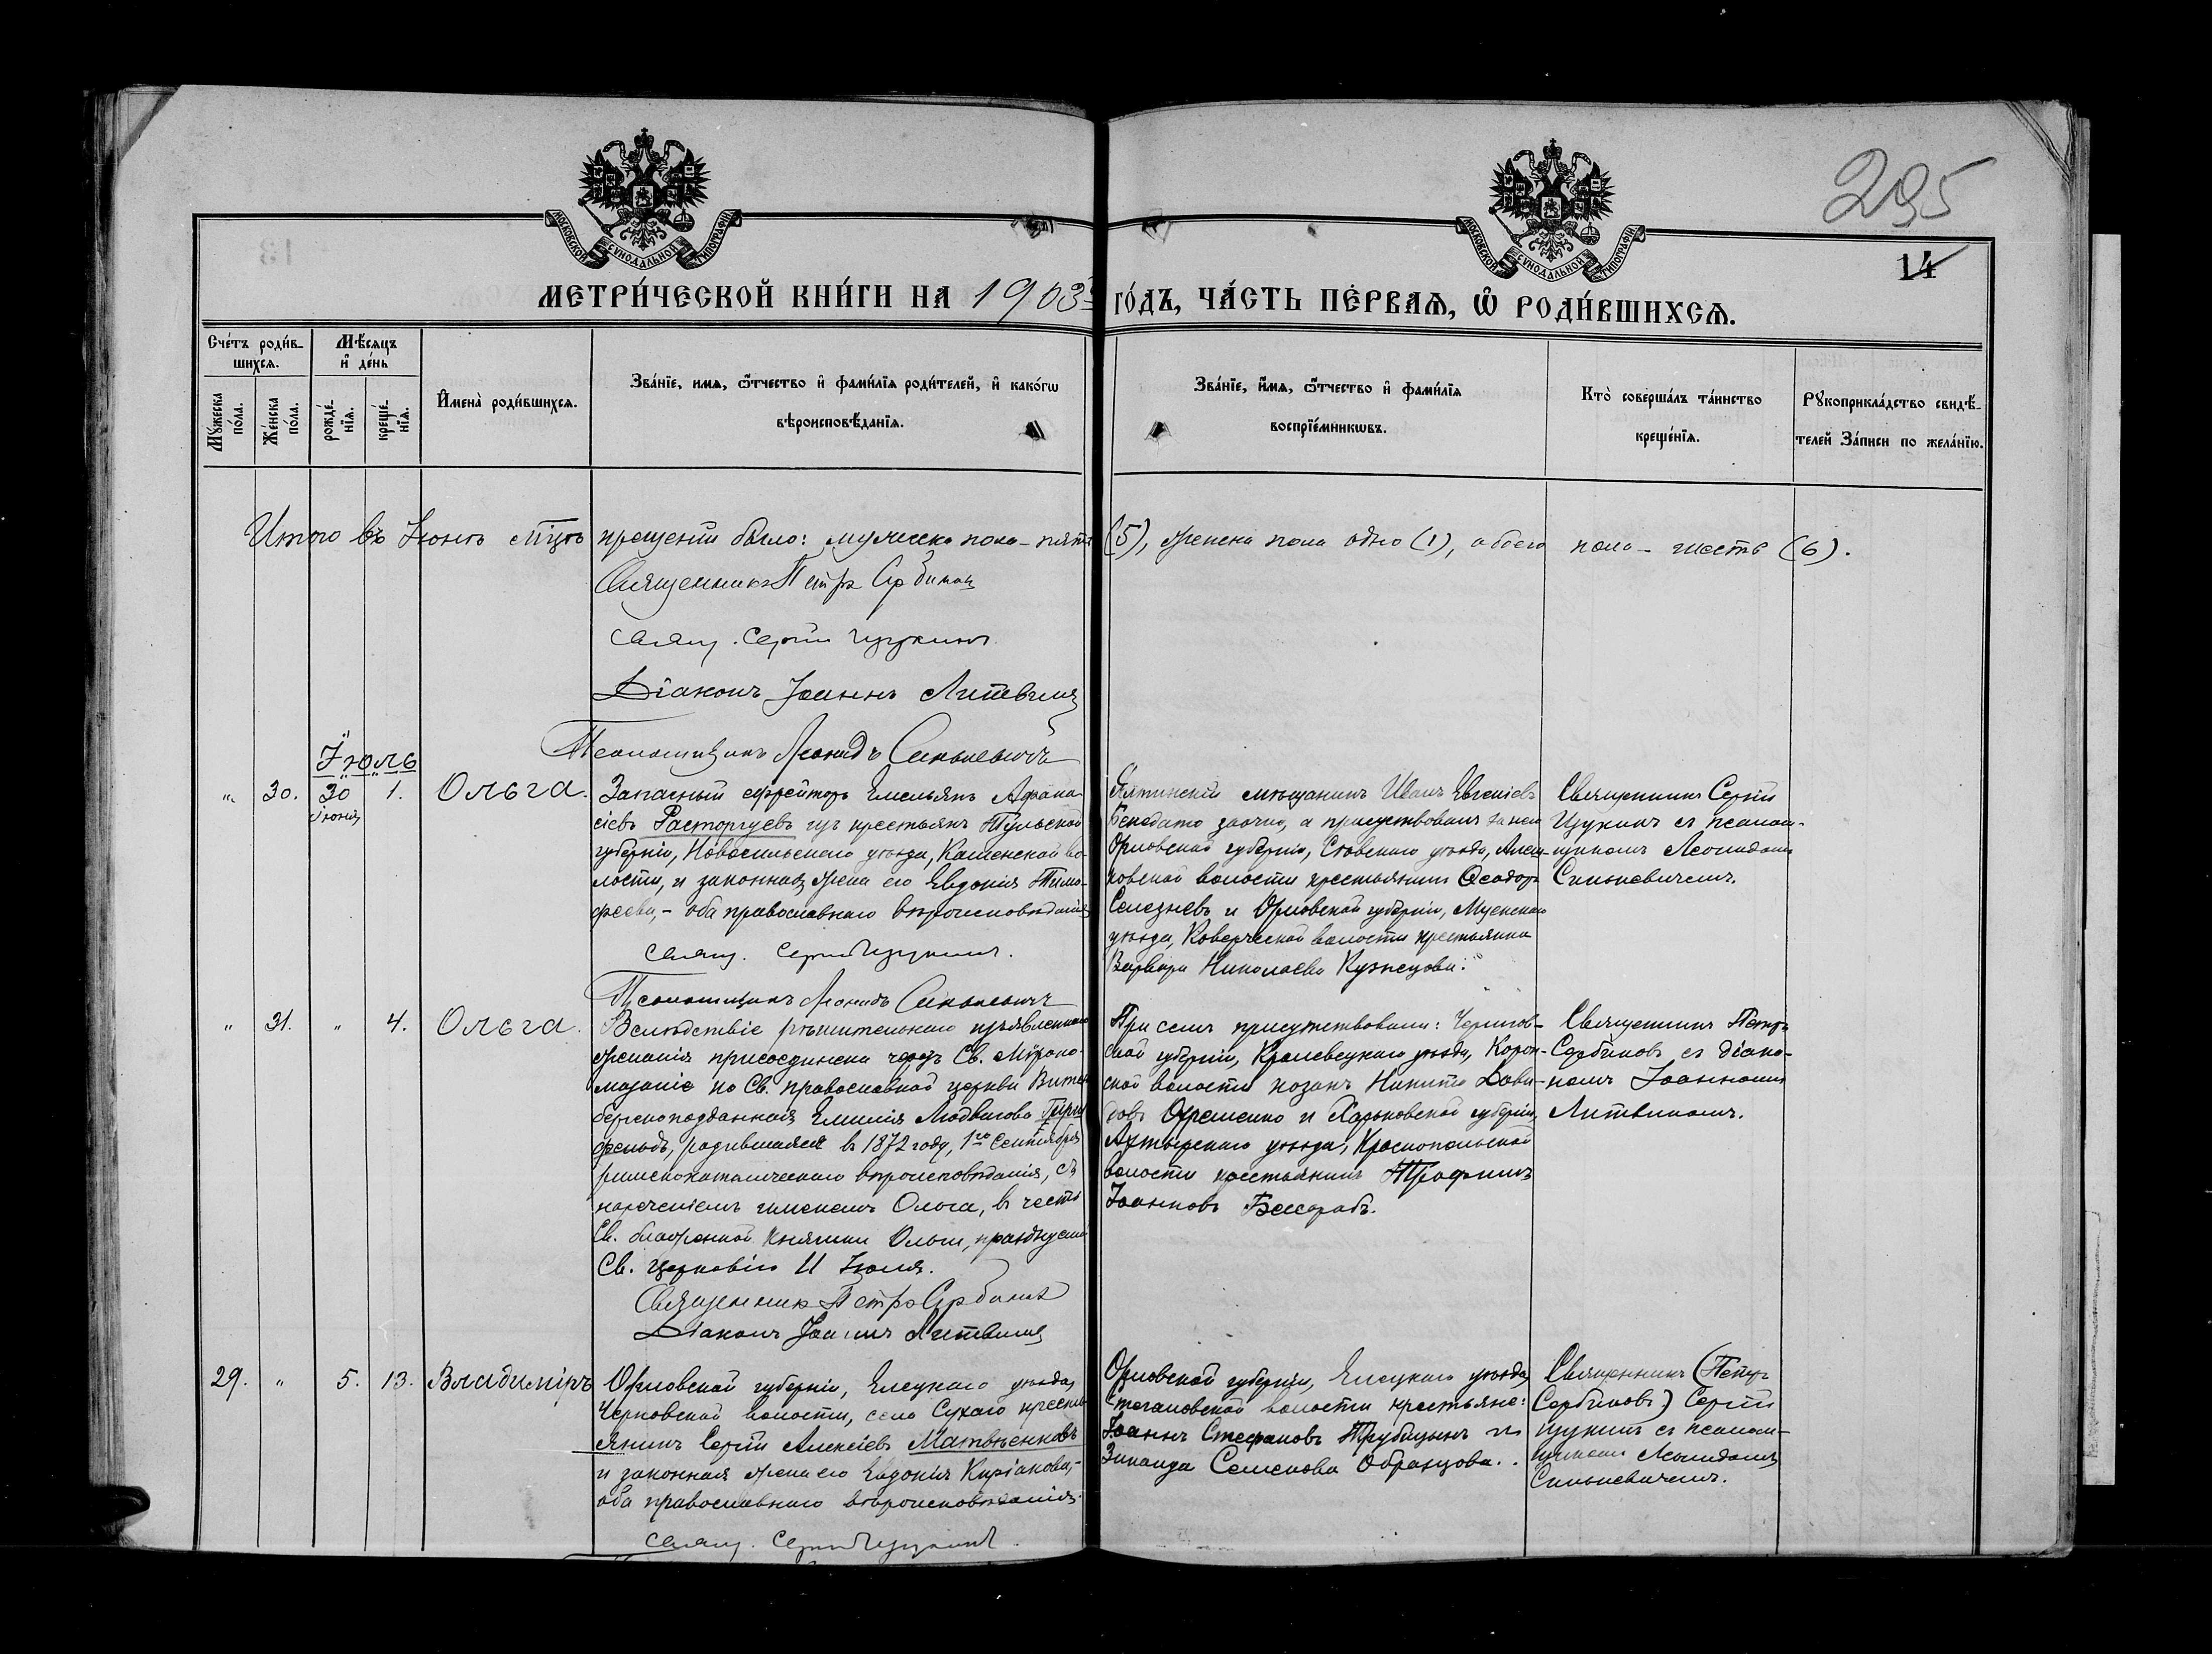 295
14
МОСКОВСКОЙ СѴНОДАЛЬНОЙ ТИПОГРАФІИ
МОСКОВСКОЙ СѴНОДАЛЬНОЙ ТИПОГРАФІИ
МЕТРИ́ЧЕСКОЙ КНИ́ГИ НА 1903й ГО́ДЪ, ЧА́СТЬ ПЕ́РВАѦ, Ѡ҆ РОДИ́ВШИХСѦ.
Сче́тъ роди́в-
шихсѧ.
Мꙋ́жеска по́ла.
Же́нска по́ла.
Мѣ́сѧцъ
и҆ де́нь
рожде́-
нїѧ.
креще́-
нїѧ.
И҆мена̀ роди́вшихсѧ.
Зва́нїе, и҆мѧ, ѻ҆́тчество и҆ фами́лїѧ роди́телей, и҆ како́гѡ
вѣроисповѣ́данїѧ.
Зва́нїе, и҆́мѧ, ѻ҆́тчество и҆ фами́лїѧ
воспрїе́мникѡвъ.
Кто̀ соверша́лъ та́инство
креще́нїѧ.
Рꙋкоприкла́дство свидѣ́-
телей За́писи по жела́нїю.
Итого въ Іюнѣ мцѣ крещеній было: мужеска пола - пять (5), женска пола одно (1), обоего пола - шесть (6).
Священникъ Петръ Сербиновъ
Свящ. Сергій Щукинъ
Діаконъ Іоаннъ Литвинъ
Псаломщикъ Леонидъ Синькевичъ
Іюль
" 30. 30 Іюня 1. Ольга.
Запасный ефрейторъ Емельянъ Афана-
сіевъ Расторгуевъ изъ крестьянъ Тульской
губерніи, Новосильскаго уѣзда, Каменской во-
лости, и законная жена его Евдокія Тимо-
феева, - оба православнаго вѣроисповѣданія
Свящ. Сергій Щукинъ.
Псаломщикъ Леонидъ Синькевичъ
Ялтинскій мѣщанинъ Иванъ Евгеніевъ
заочно, а присутствовали за него
Орловской губерніи, Сѣвскаго уѣзда,
ковской волости крестьянинъ Ѳеодоръ
Селезневъ и Орловской губерніи, Мценскаго
уѣзда, волости крестьянка
Варвара Николаева Кузнецова.
Священникъ Сергій
Щукинъ съ псалом-
щикомъ Леонидомъ
Синькевичемъ.
" 31. " 4. Ольга.
Вслѣдствіе рѣшительнаго изъявленнаго
желанія присоединена чрезъ Св. Мѵропо-
мазаніе къ Св. православной церкви Виртем-
бергскоподданная Емилія Людвигова
родившаяся въ 1872 году, 1го Сентября
римскокатолическаго вѣроисповѣданія, съ
нареченіемъ именемъ Ольга, въ честь
Св. блаженной Княгини Ольги, празднуемой
Св. церковію 11 Іюля.
Священникъ Петръ Сербиновъ
Діаконъ Іоаннъ Литвинъ
При семъ присутствовали: Чернигов-
ской губерніи, Кролевецкаго уѣзда, Короп-
ской волости козакъ Никита Дави-
довъ и Харьковской губерніи,
Ахтырскаго уѣзда, Краснопольской
волости крестьянинъ Трофимъ
Іоанновъ
Священникъ Петръ
Сербиновъ съ діако-
номъ Іоанномъ
Литвиномъ.
29. " 5. 13. Владиміръ
Орловской губерніи, Елецкаго уѣзда,
Черновской волости, села Сухаго кресть-
янинъ Сергій Алексіевъ Матвѣенковъ
и законная жена его Евдокія Киріакова,-
оба православнаго вѣроисповѣданія.
Свящ. Сергій Щукинъ.
Орловской губерніи, Елецкаго уѣзда,
Стегаловской волости крестьяне:
Іоаннъ Стефановъ Трубицынъ и
Зинаида Семенова Образцова.
Священникъ (Петръ
Сербиновъ) Сергій
Щукинъ съ псалом-
щикомъ Леонидомъ
Синькевичемъ.